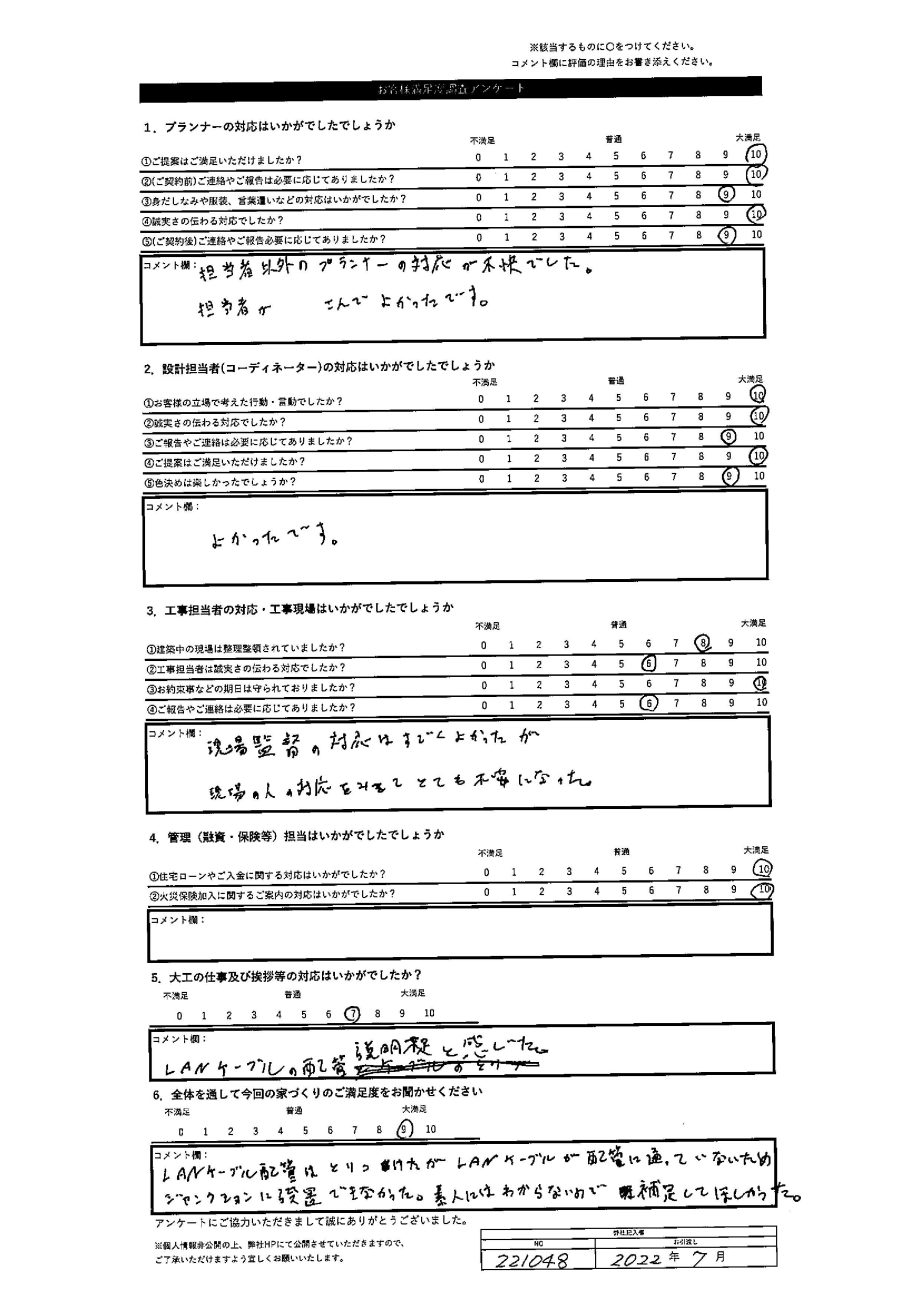 ※該当するものに〇をつけてください。
コメント欄に評価の理由をお書き添えください。
お客様満足度調査アンケート
1．プランナーの対応はいかがでしたでしょうか
不満足 普通 大満足
①ご提案はご満足いただけましたか？ 0 1 2 3 4 5 6 7 8 9 10
②(ご契約前)ご連絡やご報告は必要に応じてありましたか？ 0 1 2 3 4 5 6 7 8 9 10
③身だしなみや服装、言葉遣いなどの対応はいかがでしたか？ 0 1 2 3 4 5 6 7 8 9 10
④誠実さの伝わる対応でしたか？ 0 1 2 3 4 5 6 7 8 9 10
⑤(ご契約後)ご連絡やご報告必要に応じてありましたか？ 0 1 2 3 4 5 6 7 8 9 10
コメント欄：
担当者以外のプランナーの対応が不快でした。
担当者が さんで よかったです。
2．設計担当者(コーディネーター)の対応はいかがでしたでしょうか
不満足 普通 大満足
①お客様の立場で考えた行動・言動でしたか？ 0 1 2 3 4 5 6 7 8 9 10
②誠実さの伝わる対応でしたか？ 0 1 2 3 4 5 6 7 8 9 10
③ご報告やご連絡は必要に応じてありましたか？ 0 1 2 3 4 5 6 7 8 9 10
④ご提案はご満足いただけましたか？ 0 1 2 3 4 5 6 7 8 9 10
⑤色決めは楽しかったでしょうか？ 0 1 2 3 4 5 6 7 8 9 10
コメント欄：
よかったです。
3．工事担当者の対応・工事現場はいかがでしたでしょうか
不満足 普通 大満足
①建築中の現場は整理整頓されていましたか？ 0 1 2 3 4 5 6 7 8 9 10
②工事担当者は誠実さの伝わる対応でしたか？ 0 1 2 3 4 5 6 7 8 9 10
③お約束事などの期日は守られておりましたか？ 0 1 2 3 4 5 6 7 8 9 10
④ご報告やご連絡は必要に応じてありましたか？ 0 1 2 3 4 5 6 7 8 9 10
コメント欄：
現場監督の対応はすごくよかったが
現場の人の対応をみてとても不安になった。
4．管理（融資・保険等）担当はいかがでしたでしょうか
不満足 普通 大満足
①住宅ローンやご入金に関する対応はいかがでしたか？ 0 1 2 3 4 5 6 7 8 9 10
②火災保険加入に関するご案内の対応はいかがでしたか？ 0 1 2 3 4 5 6 7 8 9 10
コメント欄：
5．大工の仕事及び挨拶等の対応はいかがでしたか？
不満足 普通 大満足
0 1 2 3 4 5 6 7 8 9 10
コメント欄：
LANケーブルの配管 説明不足と感じた。
6．全体を通して今回の家づくりのご満足度をお聞かせください
不満足 普通 大満足
0 1 2 3 4 5 6 7 8 9 10
コメント欄：
LANケーブル配管はとりつけたがLANケーブルが配管に通っていないため
ジャンクションに設置できなかった。素人にはわからないので補足してほしかった。
アンケートにご協力いただきまして誠にありがとうございました。
※個人情報非公開の上、弊社HPにて公開させていただきますので、
ご了承いただけますよう宜しくお願いいたします。
弊社記入欄
NO お引渡し
221048 2022年 7月